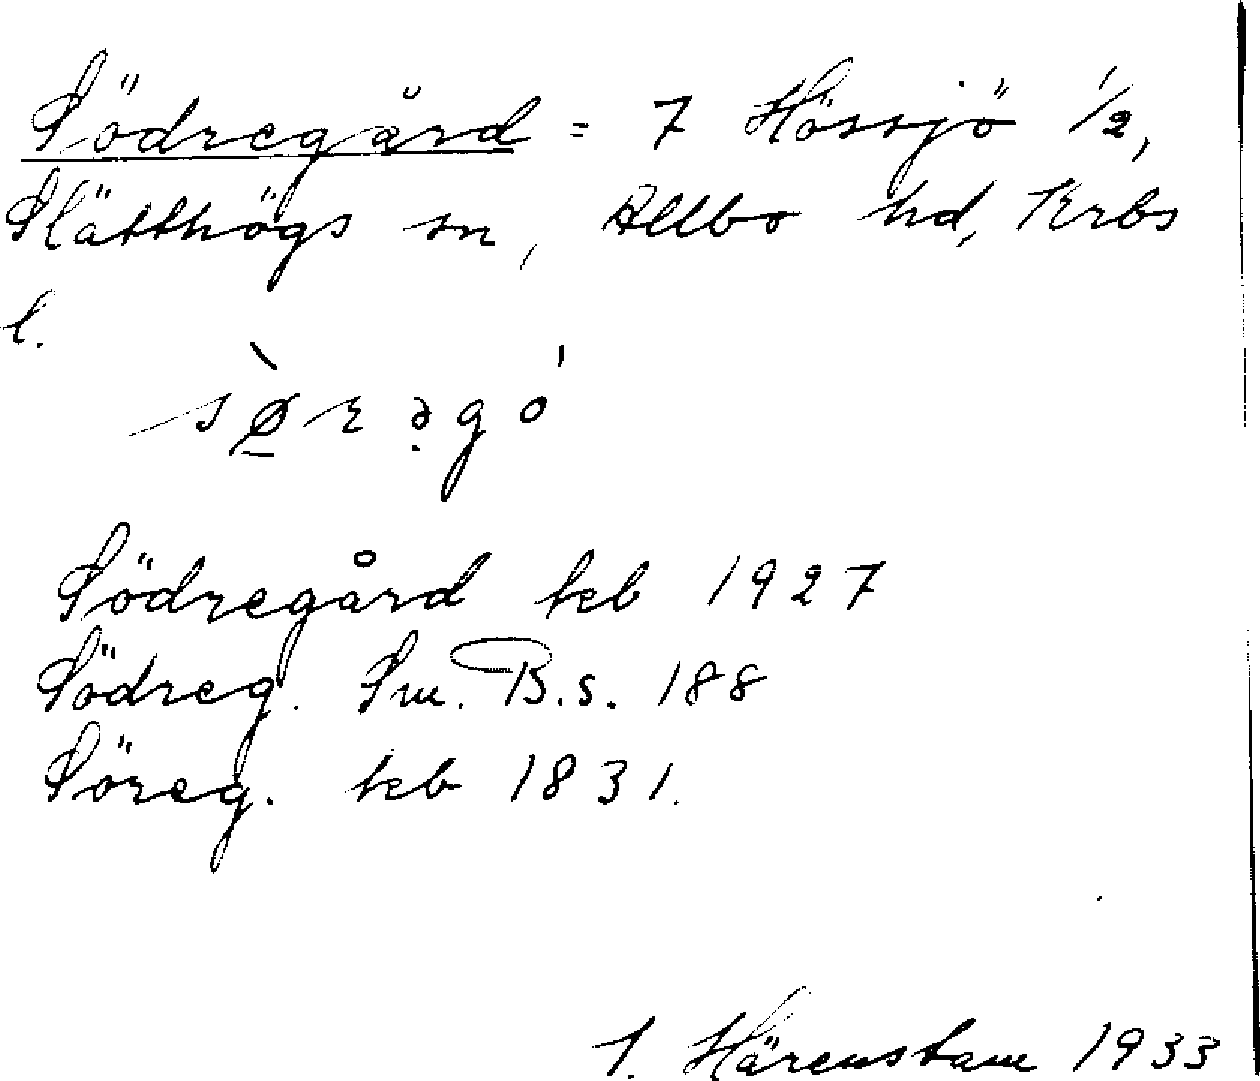 Södregård = 7 Hössjö 1/2,
Slätthögs sn, Allbo hd, Krbs
l.
sø̀rəgó
Södregård kb 1927
Södreg. Sm. B.s. 188
Söreg. kb 1831.
Härenstam 1933